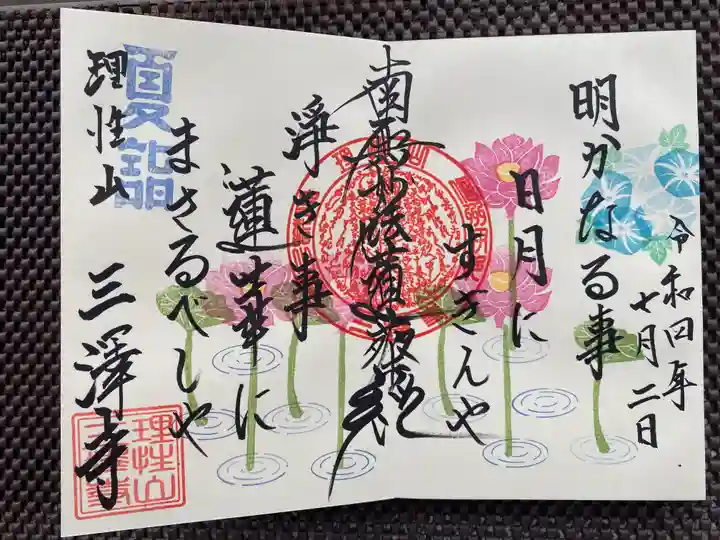 令和四年
七月二日
明かなる事
日月に
すぎんや
南無妙法蓮華経
浄き事
蓮華に
まさるべしや
夏詣
理性山
三澤寺
理性山
三澤寺